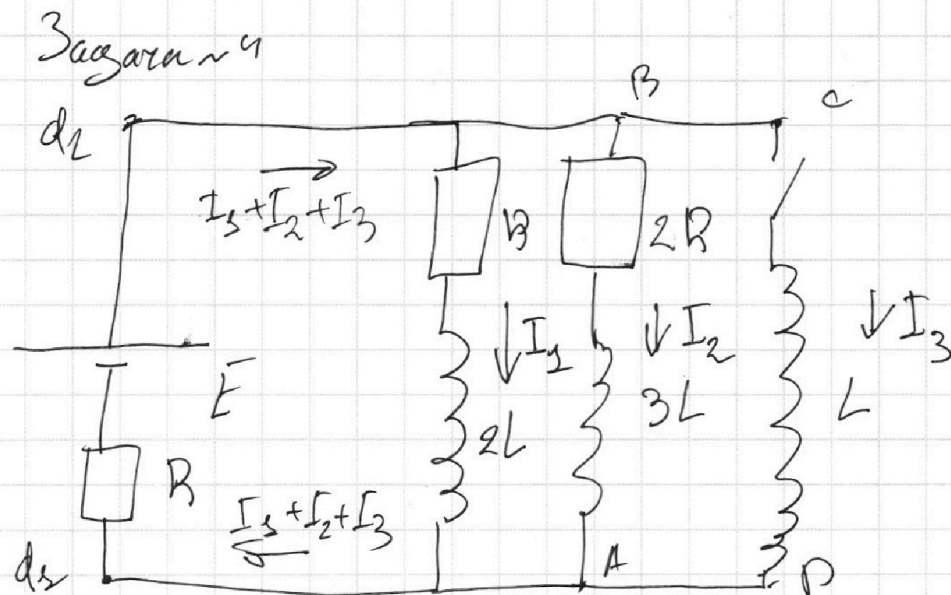 Задача ~ 4
B
C
d2
I1+I2+I3
R
2R
I1
I2
I3
E
2L
3L
L
R
I1+I2+I3
d1
A
D